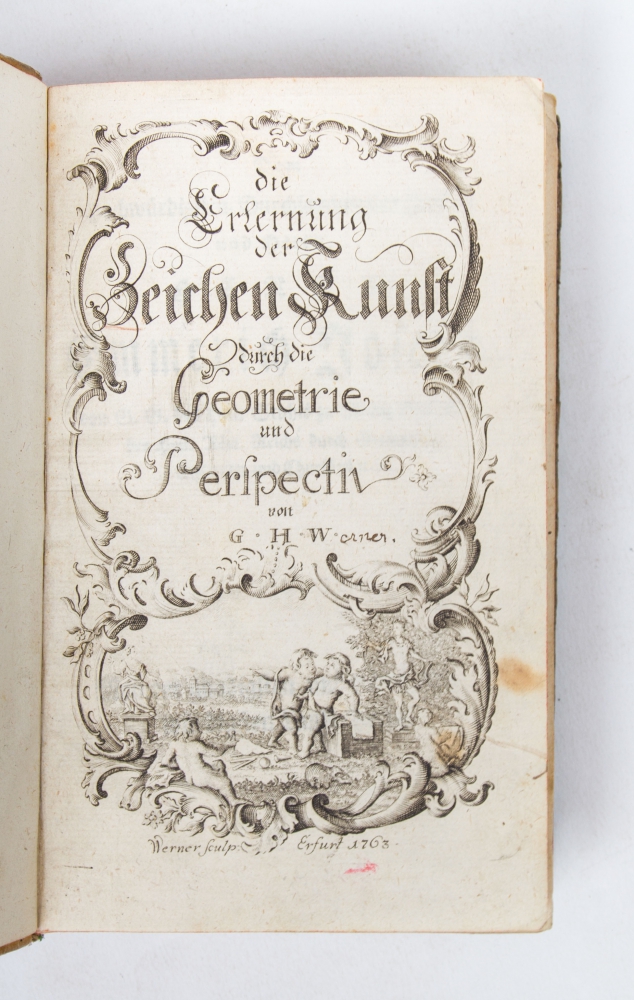 die
Erlernung
der
Zeichen Kunst
durch die
Geometrie
und
Perspectiv
von
G. H. Werner.
Werner sculp. Erfurt 1763.